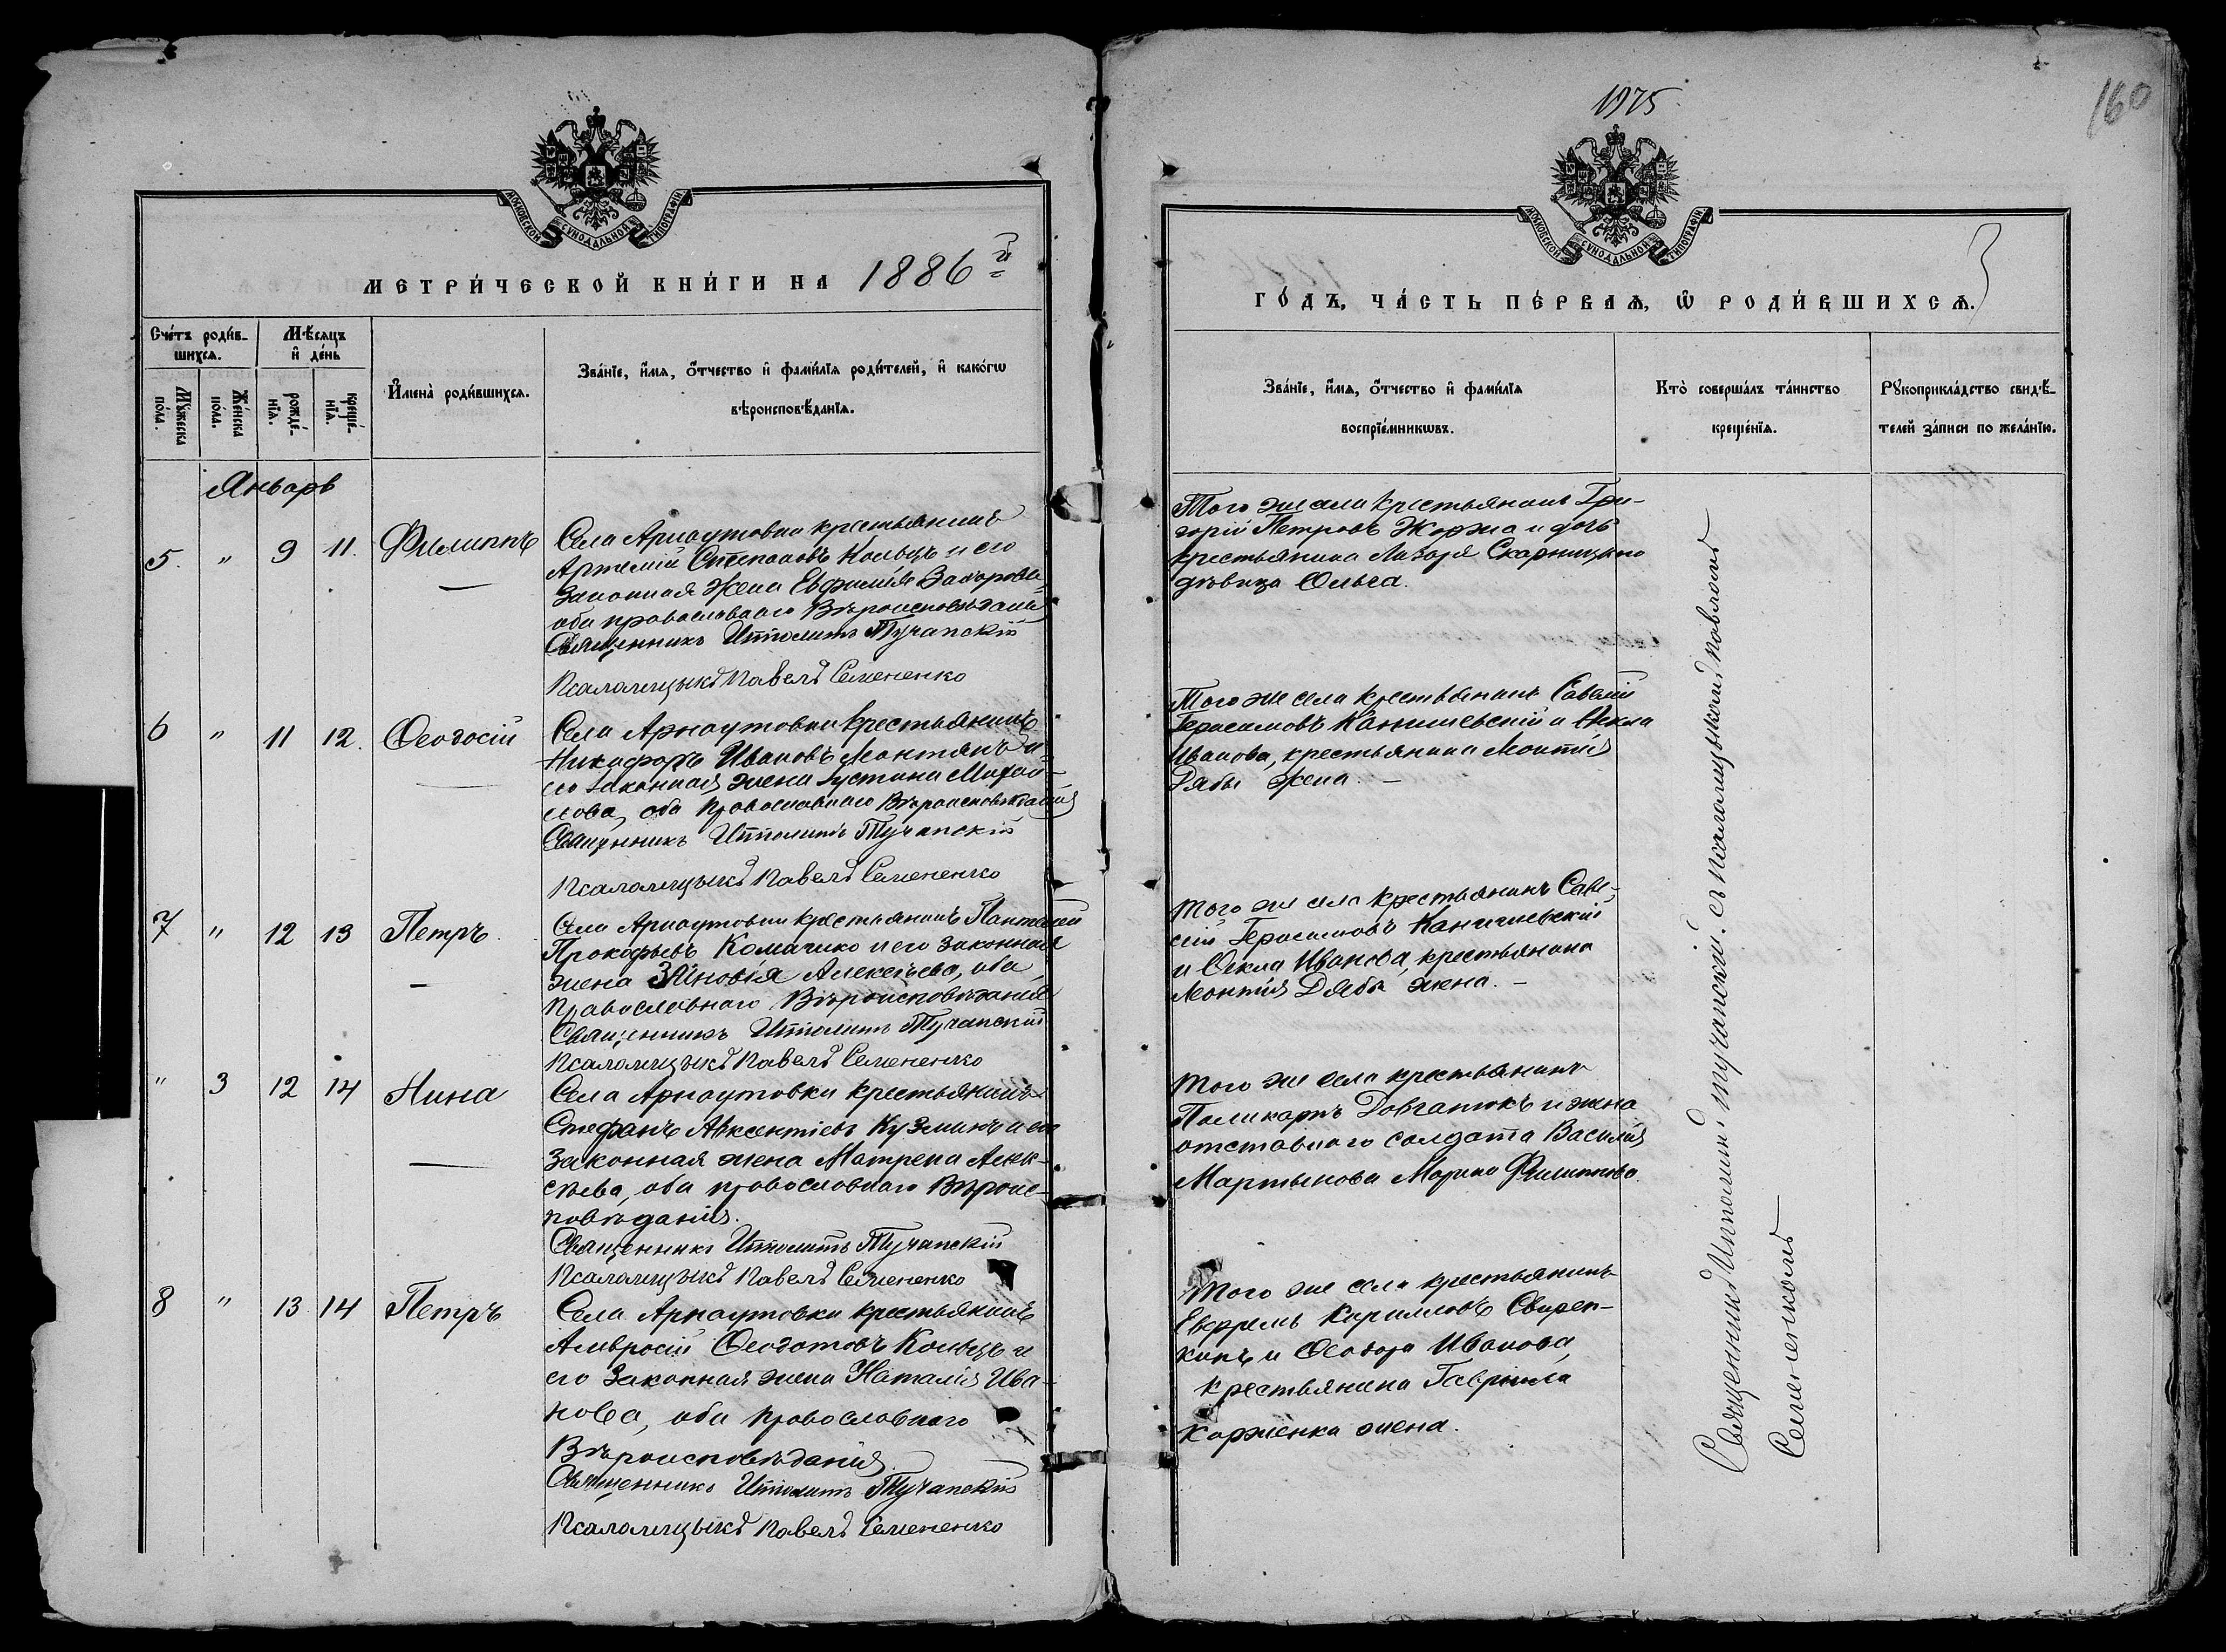 МОСКОВСКОЙ СѴНОДАЛЬНОЙ ТИПОГРАФІИ
МЕТРИ́ЧЕСКОЙ КНИ́ГИ НА 1886 й
Сче́тъ роди́в-
шихсѧ.
Мѣ́сѧцъ
и҆ де́нь
Мꙋ́жеска
по́ла.
Же́нска
по́ла.
рожде́-
нїѧ.
креще́-
нїѧ.
И҆мена̀ роди́вшихсѧ.
Зва́нїе, и҆́мѧ, ѻ҆́тчество и҆ фами́лїѧ роди́телей, и҆ како́гѡ
вѣроисповѣ́данїѧ.
Январь
5. " 9 11. Филиппъ
Села Арнаутовки крестьянинъ
Артемій Степановъ Кольцъ и его
законная жена Евфимія Захарова,
оба православнаго Вѣроисповѣданія
Священникъ Ипполитъ Тучапскій
Псаломщыкъ Павелъ Семененко
6 " 11 12. Ѳеодосій
Села Арнаутовки крестьянинъ
Никифоръ Ивановъ Монтянъ и
его законная жена Iустина Михай-
лова, оба Православнаго Вѣроисповѣданія
Священникъ Ипполитъ Тучапскій
Псаломщыкъ Павелъ Семененко
7 " 12 13 Петръ
Села Арнаутовки крестьянинъ Пантелей
Прокофьевъ и его законная
жена Зѣновія Алексѣева, оба
Православнаго Вѣроисповѣданія
Священникъ Ипполитъ Тучапскій
Псаломщыкъ Павелъ Семененко
" 3 12 14 Нина
Села Арнаутовки крестьянинъ
Стефанъ Авксентіевъ Кузминъ и его
Законная жена Матрена Алек-
сѣева, оба православнаго Вѣроис-
повѣданія.
Священникъ Ипполитъ Тучапскій
Псаломщыкъ Павелъ Семененко
8 " 13 14 Петръ
Села Арнаутовки крестьянинъ
Амвросій Ѳеодотовъ Кольцъ и
его Законная жена Наталія Ива-
нова, оба Православнаго
Вѣроисповѣданія.
Священникъ Ипполитъ Тучапскій
Псаломщыкъ Павелъ Семененко
1975
160
МОСКОВСКОЙ СѴНОДАЛЬНОЙ ТИПОГРАФІИ
ГО́ДЪ, ЧА́СТЬ ПЕ́РВАѦ, Ѽ РОДИ́ВШИХСѦ.
3
Зва́нїе, и҆́мѧ, ѻ҆́тчество и҆ фами́лїѧ
воспрїе́мникѡвъ.
Кто̀ соверша́лъ та́инство
креще́нїѧ.
Рꙋкоприкла́дство свидѣ́-
телей за́писи по жела́нїю.
Того же села крестьянинъ Гри-
горій Петровъ Жоржа и дочь
крестьянина Лазаря
дѣвица Ольга.
Того же села крестьянинъ Савелій
Герасимовъ и Ѳекла
Иванова, крестьянина Монтія
Дябы жена. –
Того же села крестьянинъ Саве-
лій Герасимовъ
и Ѳекла Иванова, крестьянина
Монтія Дябы жена. –
Того же села крестьянинъ
Поликарпъ Довганюкъ и жена
отставнаго солдата Василія
Мартынова Марина Филиппова.
Того же села крестьянинъ
Евфремъ Кириловъ
и Ѳеодора Иванова,
крестьянина Гавриила
Корженка жена.
Священникъ Ипполитъ Тучапскій. съ псаломщыкомъ Павломъ
Семененкомъ